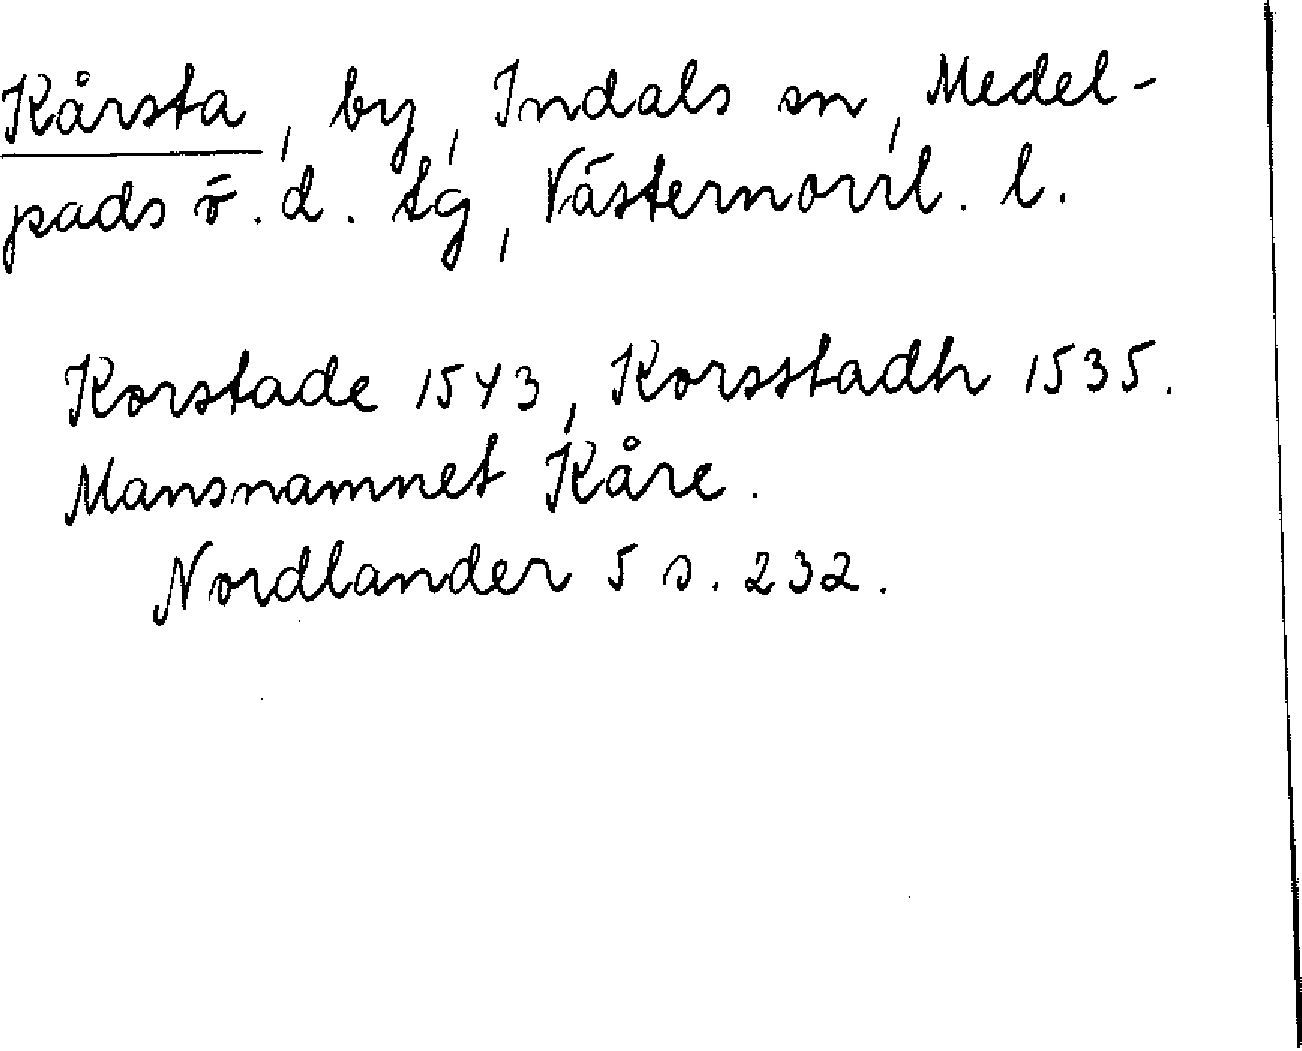 Kårsta, by, Indals sn, Medel-
pads ö. d. tg, Västernorrl. l.
Korstade 1543, Korsstadh 1535.
Mansnamnet Kåre.
Nordlander 5 s. 232.